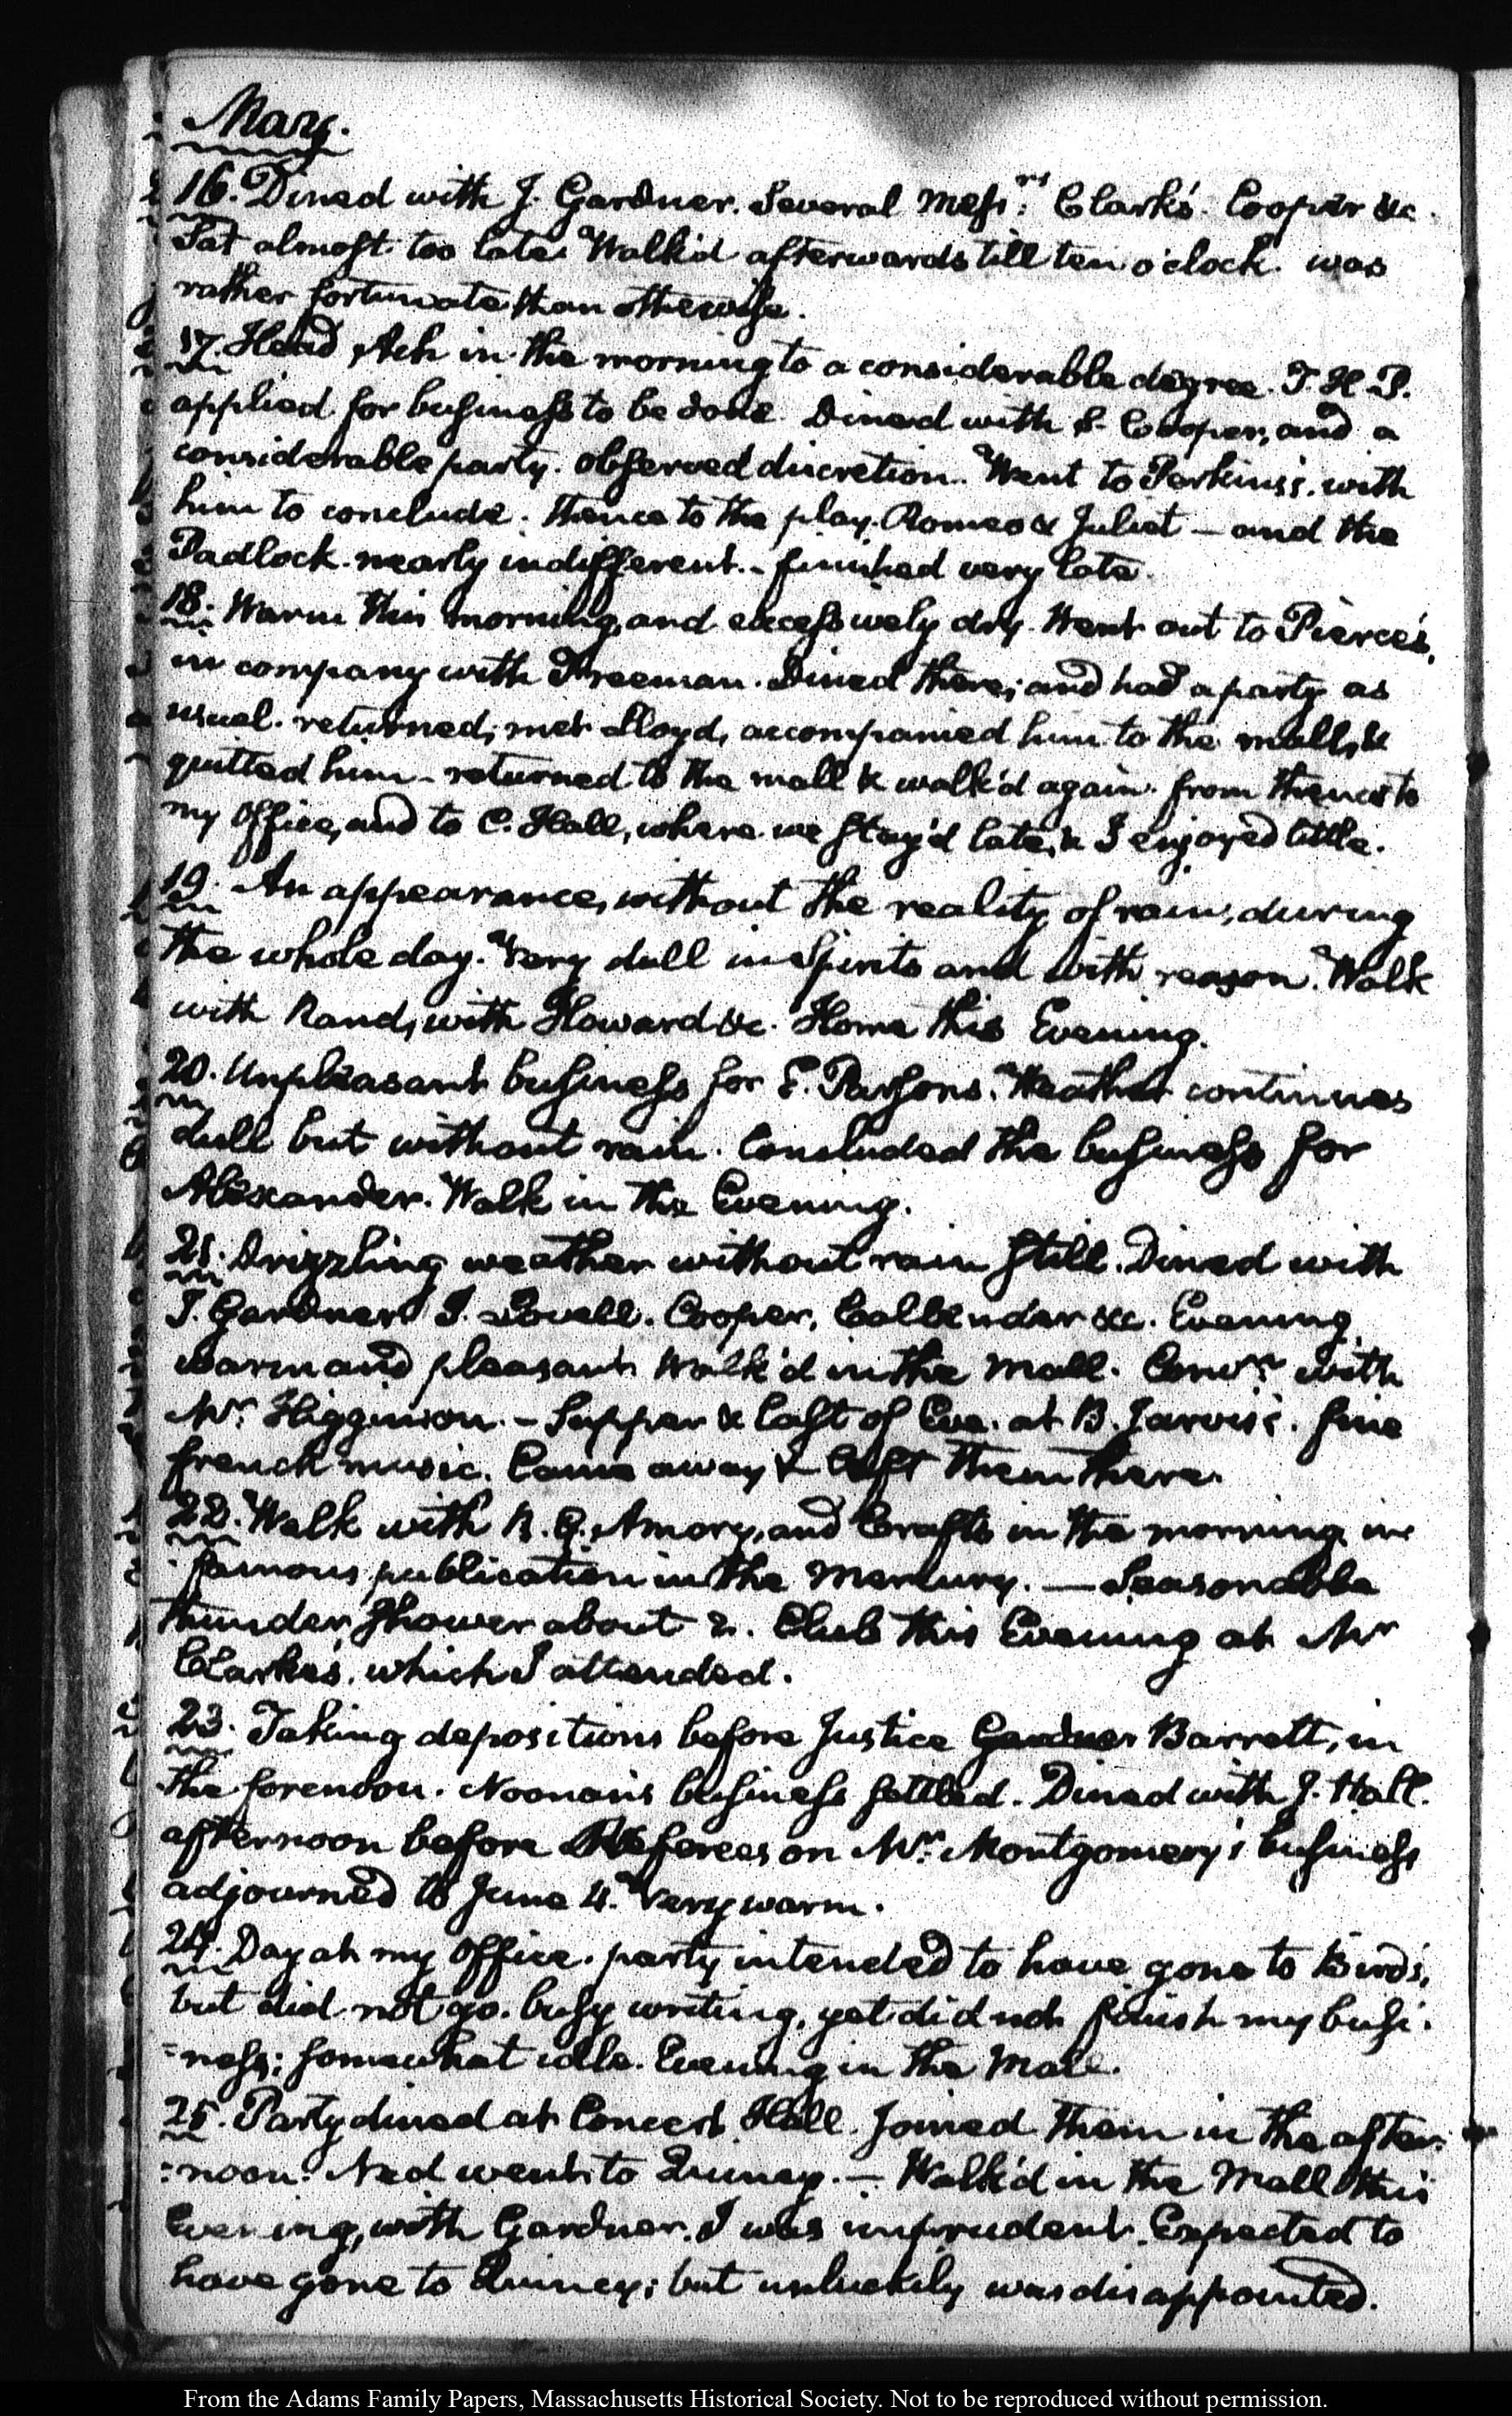 May.
16. Dined with J. Gardner. Several Messrs: Clark's. Cooper &c.
Sat almost too late. Walk'd afterwards till ten o'clock. was
rather fortunate than otherwise.
17. Head Ach in the morning to a considerable degree. T H P.
applied for business to be done. Dined with S. Cooper, and a
considerable party. observed discretion. Went to Perkins's. with
him to conclude. thence to the play. Romeo & Juliet — and the
Padlock. nearly indifferent. - finished very late.
18. Warm this morning, and excessively dry. Went out to Pierce's,
in company with Freeman. Dined there; and had a party as
usual. returned; met Lloyd, accompanied him to the mall, &
quitted him - returned to the mall & walk'd again. from thence to
my office, and to C. Hall, where we stay'd late, & I enjoyed little.
19. An appearance, without the reality of rain, during
the whole day. Very dull in Spirits and with reason. Walk
with Rand, with Howard &c. Home this Evening.
20. Unpleasant business for E. Parsons. Weather continues
dull but without rain. Concluded the business for
Alexander. Walk in the Evening.
21. Drizzling weather without rain still. Dined with
J. Gardner J. Lovell. Cooper, Callender &c. Evening
warm and pleasant. Walk'd in the Mall. Convn. with
Mr. Higginson. - Supper & last of Eve. at B. Jarvis's. fine
french music. Came away & left them there.
22. Walk with R. G. Amory, and Crafts in the morning. in
famous publication in the Mercury. — Seasonable
thunder shower about 2. Club this Evening at Mr
Clarke's, which I attended.
23. Taking depositions before Justice Gardner Barrett, in
the forenoon. Noonan's business settled. Dined with J. Hall.
afternoon before Referees on Mr. Montgomery's business
adjourned to June 4. Very warm.
24. Day at my Office. party intended to have gone to Bird's,
but did not go. busy writing, yet did not finish my busi-
=ness; somewhat idle. Evening in the Mall.
25. Party dined at Concert Hall. Joined them in the after-
=noon. Ned went to Quincy. — Walk'd in the Mall this
Evening, with Gardner. I was imprudent. Expected to
have gone to Quincy; but unluckily was disappointed.
From the Adams Family Papers, Massachusetts Historical Society. Not to be reproduced without permission.